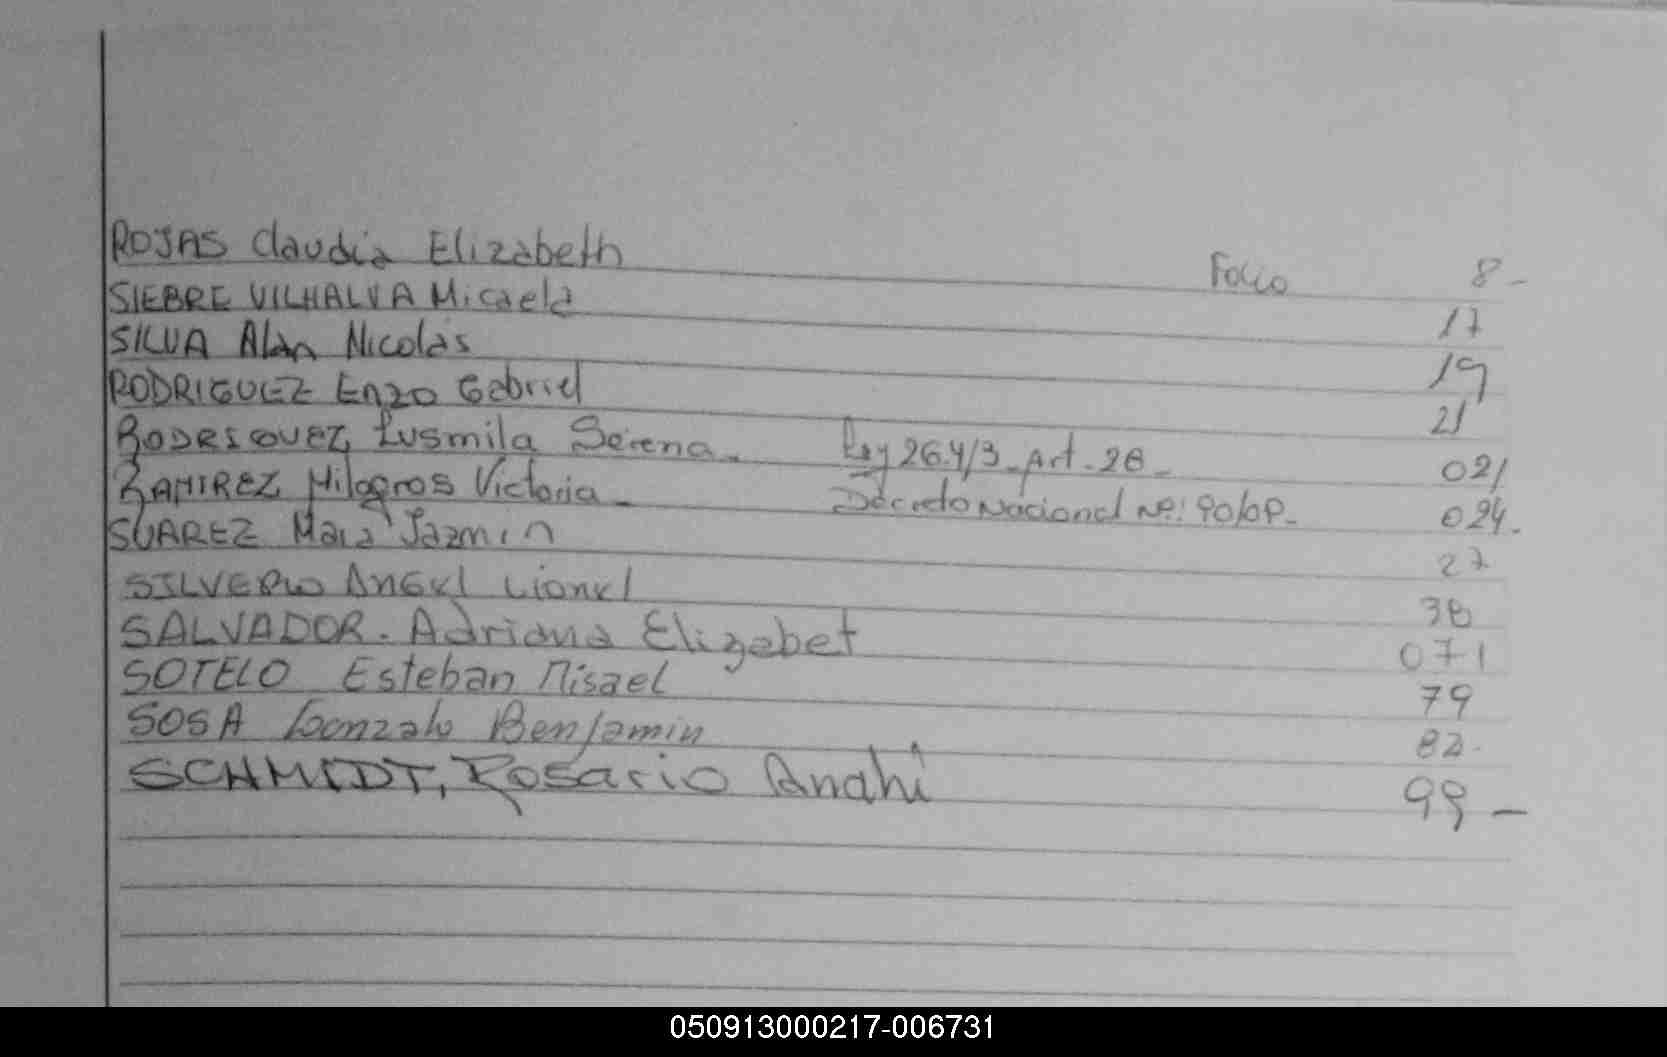 ROJAS Claudia Elizabeth Folio 8-
SIEBRE VILHALVA Micaela 17
SILVA Alan Nicolás 19
RODRIGUEZ Enzo Gabriel 21
RODRIGUEZ, Lusmila Serena. Ley 26.413-Art-28- 021
RAMIREZ, Milagros Victoria- Decreto Nacional Nº: 90/09- 024.
SUAREZ Jazmin 27
SILVERIO ANGEL Lionel 38
SALVADOR. Adriana Elizabet 071
SOTELO Esteban Misael 79
SOSA Gonzalo Benjamin 82.
SCHMIDT, Rosario Anahí 99-
050913000217-006731